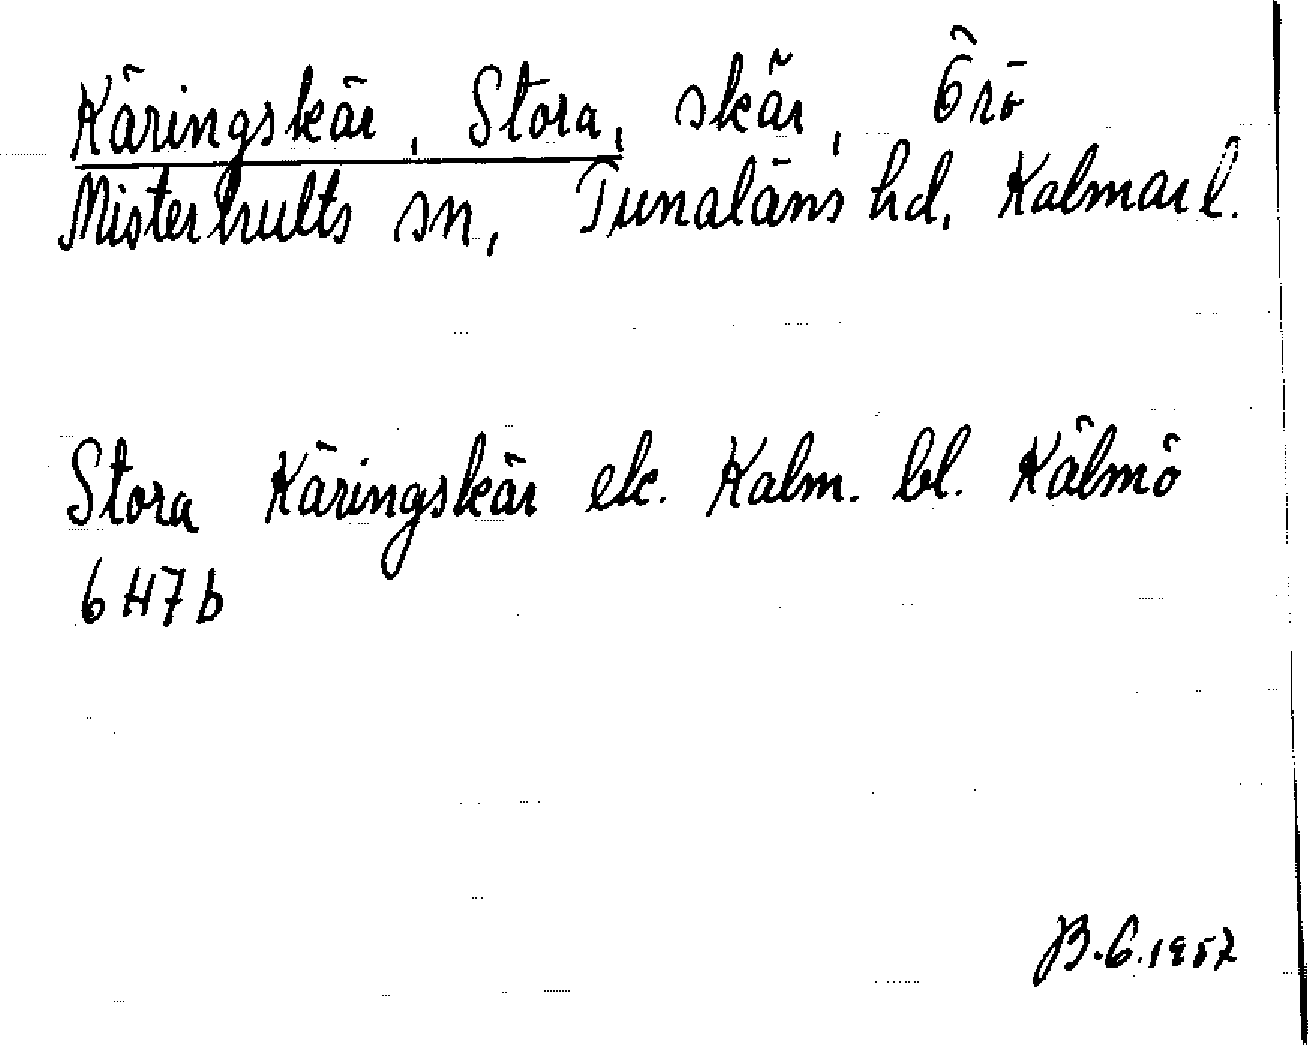 Käringskär, Stora, skär, Örö
Misterhults sn, Tunaläns hd, Kalmar l.
Stora Käringskär ek. Kalm. bl. Kälmö
6 H7 b
B.G. 1957